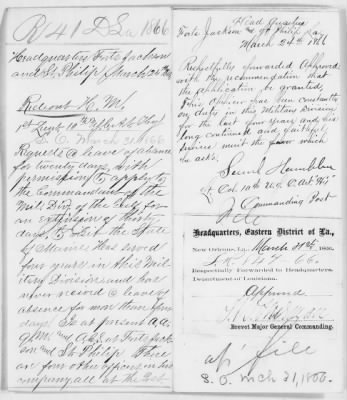 R 41 D La 1866
Headquarters Forts Jackson
and St. Philip March 24th 1866
Rideout H. M.
1st Lieut 10th
S. O. March 31. 1866
Requests a leave of absence
for twenty days, with
permission to apply to
the Commandant of the
Mil. Div. of the Gulf for
an extension of thirty
days, to visit the State
of Maine. Has served
four years in this Mil
itary Division and has
never received a leave of
absence for more than four
days. Is at present A. A.
Q. M. and A. C. S. at Forts Jack
son and St Philip. There
are four other officers in his
company, all at the Post
Head Quarters
Forts Jackson & St Philip La,
March 24th 1866
Respectfully forwarded Approved
with the recommendation that
the application be granted,
This officer has been constantly
on duty in this Military Division
for the last four years and his
long continued and faithful
service merit the favor which
he asks.
Lt Col 10th U.S.C. Art H'y
Commanding Post
File
Headquarters, Eastern District of La.,
New Orleans, La., March 31st 1866.
147 66.
Respectfully Forwarded to Headquarters,
Department of Louisiana.
Approved
Brevet Major General Commanding.
file
S. O. Mch 31, 1866.